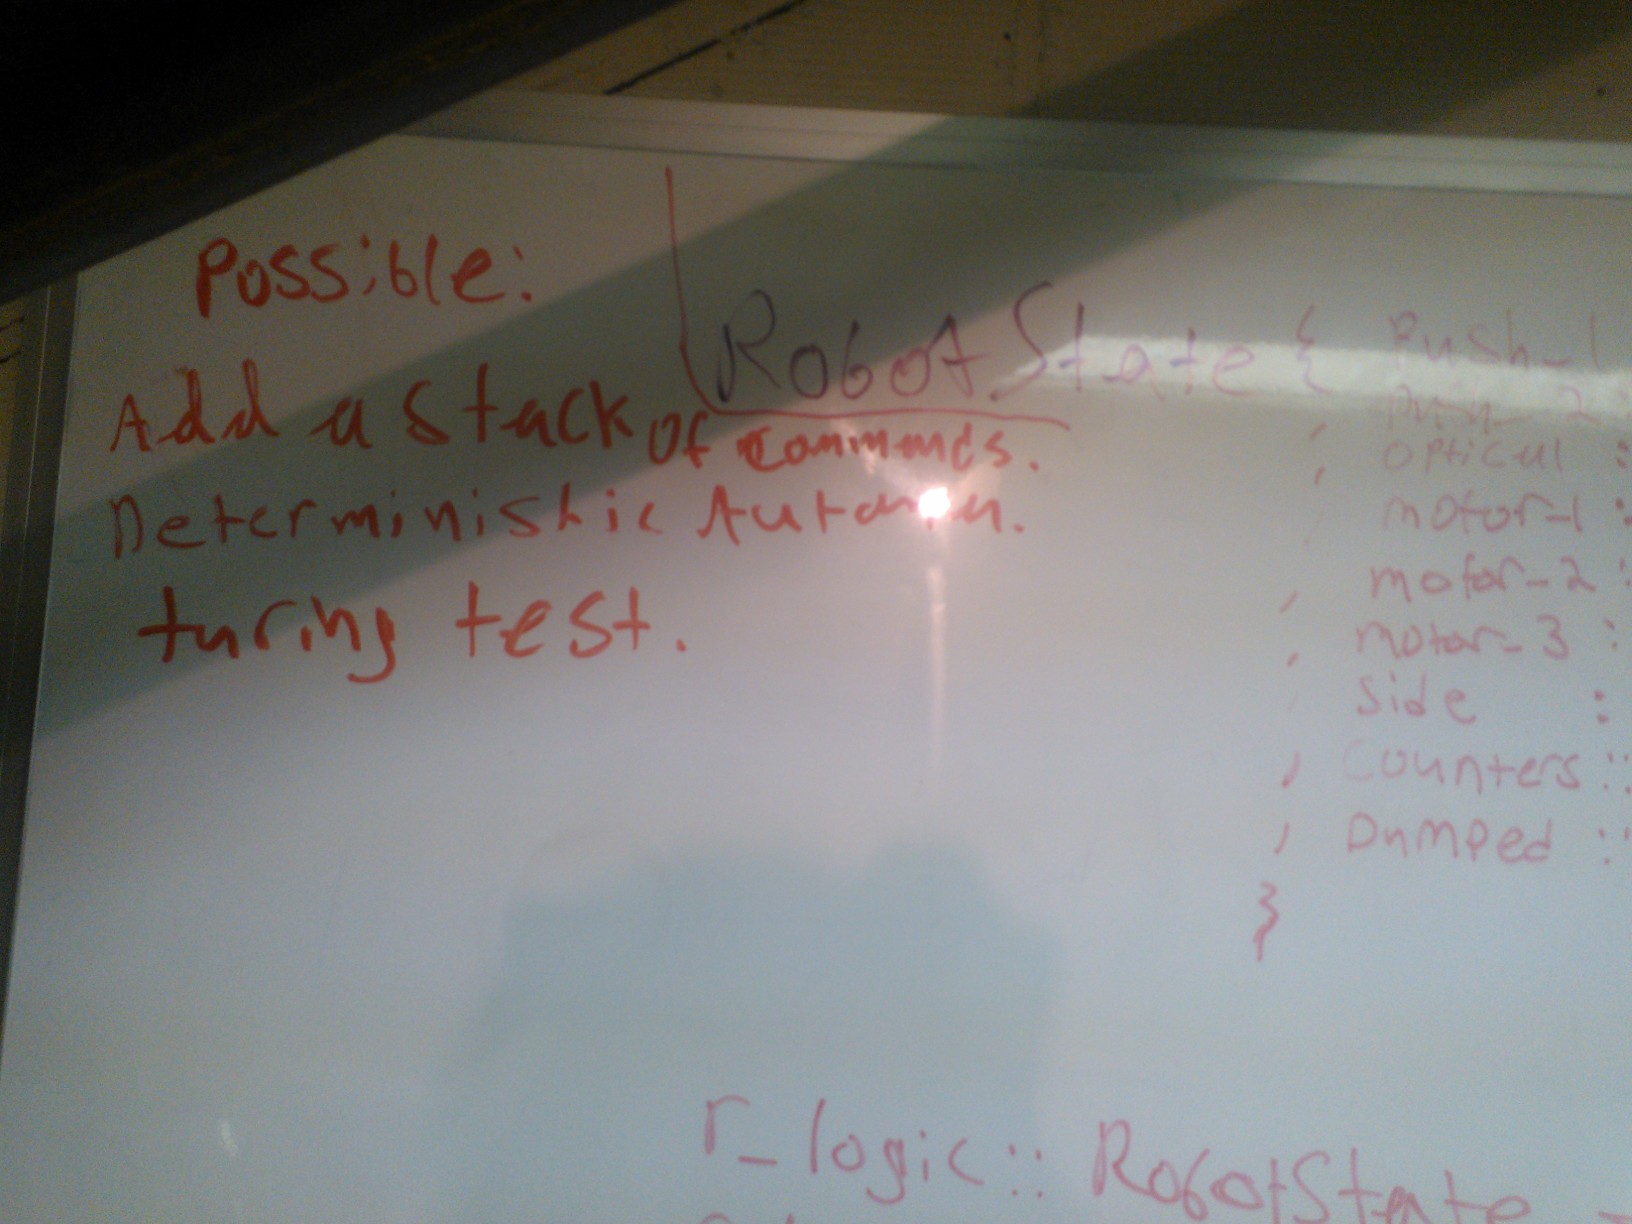 Possible:
Add a stack of commands.
Deterministic
turing test.
RobotState { Push_1
Push_2 :
, optical :
, motor_1 :
, motor_2 :
, motor_3 :
Side :
, Counters ::
, Dumped ::
}
r_logic :: RobotState -